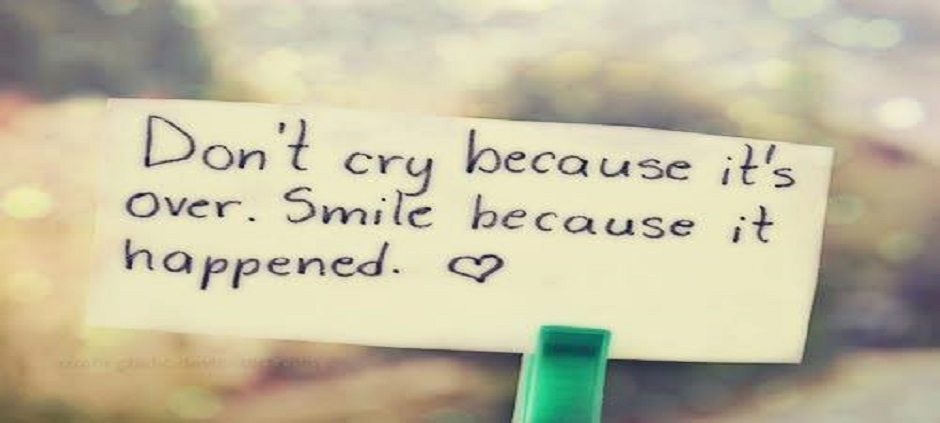 Don't cry because it's
over. Smile because it
happened. ♡